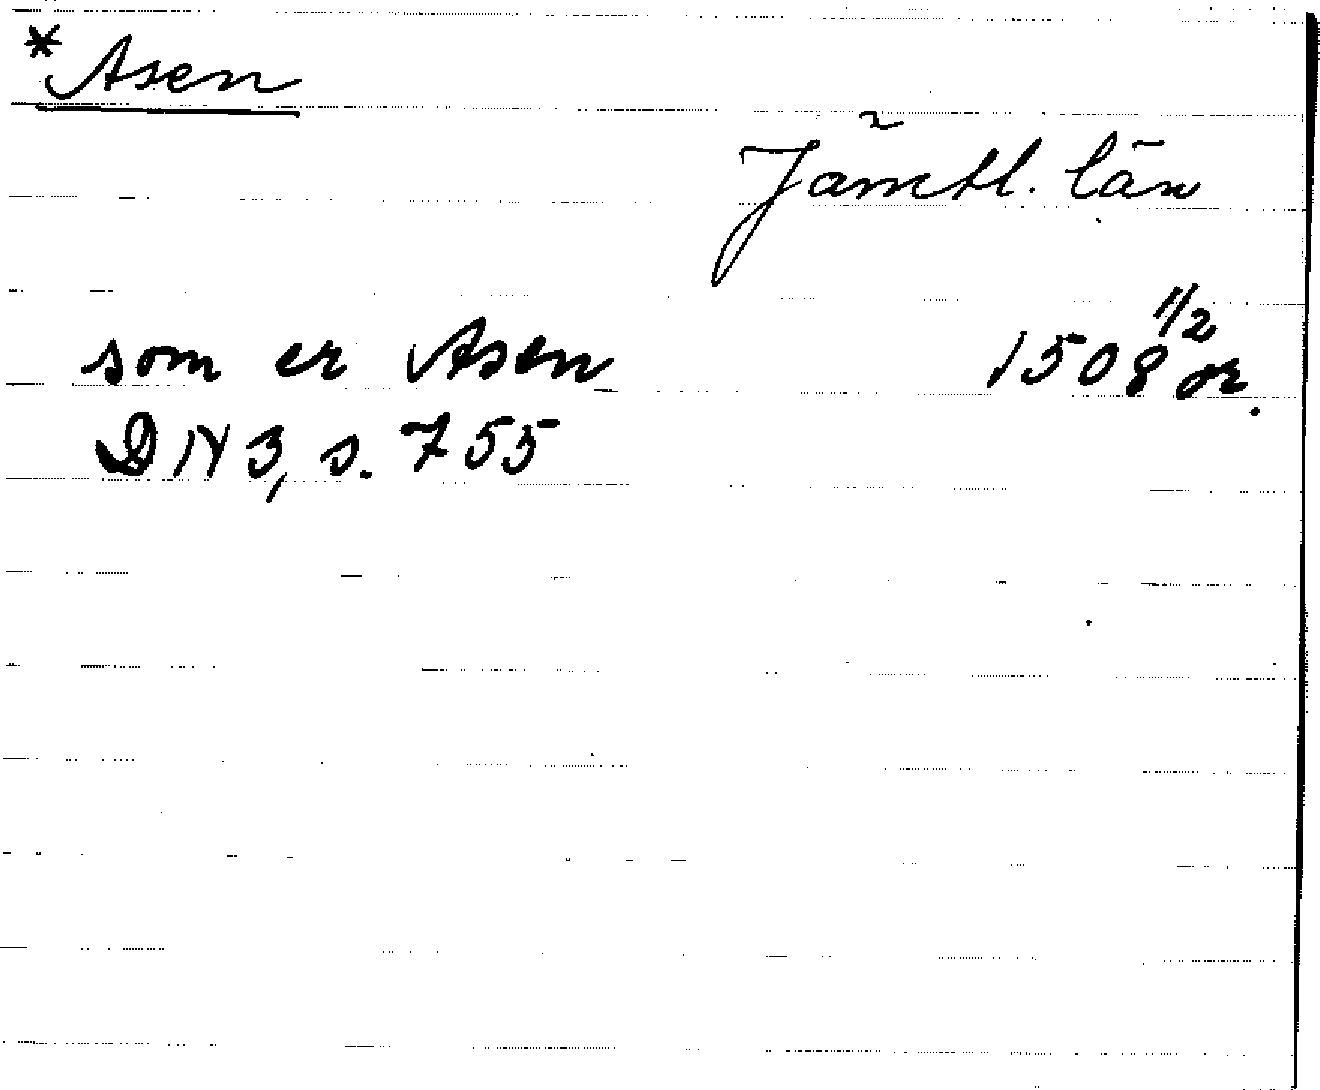 *Asen
Jämtl. län
som er Asen 1508 11/2 or.
DN 3, s. 755